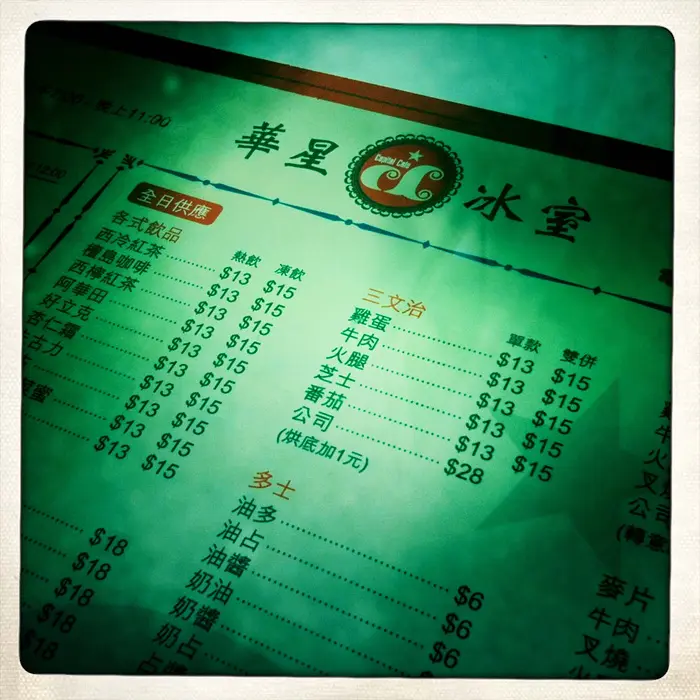 晚上11:00
華星
Capital Cafe
CC
冰室
12:00
全日供應
各式飲品
熱飲 凍飲
西冷紅茶 $13 $15
檀島咖啡 $13 $15
西檸紅茶 $13 $15
阿華田 $13 $15
好立克 $13 $15
杏仁霜 $13 $15
古力 $13 $15
$13 $15
蜜 $13 $15
$18
$18
$18
$18
$18
三文治
單款 雙併
雞蛋 $13 $15
牛肉 $13 $15
火腿 $13 $15
芝士 $13 $15
番茄 $13 $15
公司 $28
(烘底加1元)
多士
油多 $6
油占 $6
油醬 $6
奶油
奶醬
奶占
占醬
牛
火
叉
公司
麥片
牛肉
叉燒
火